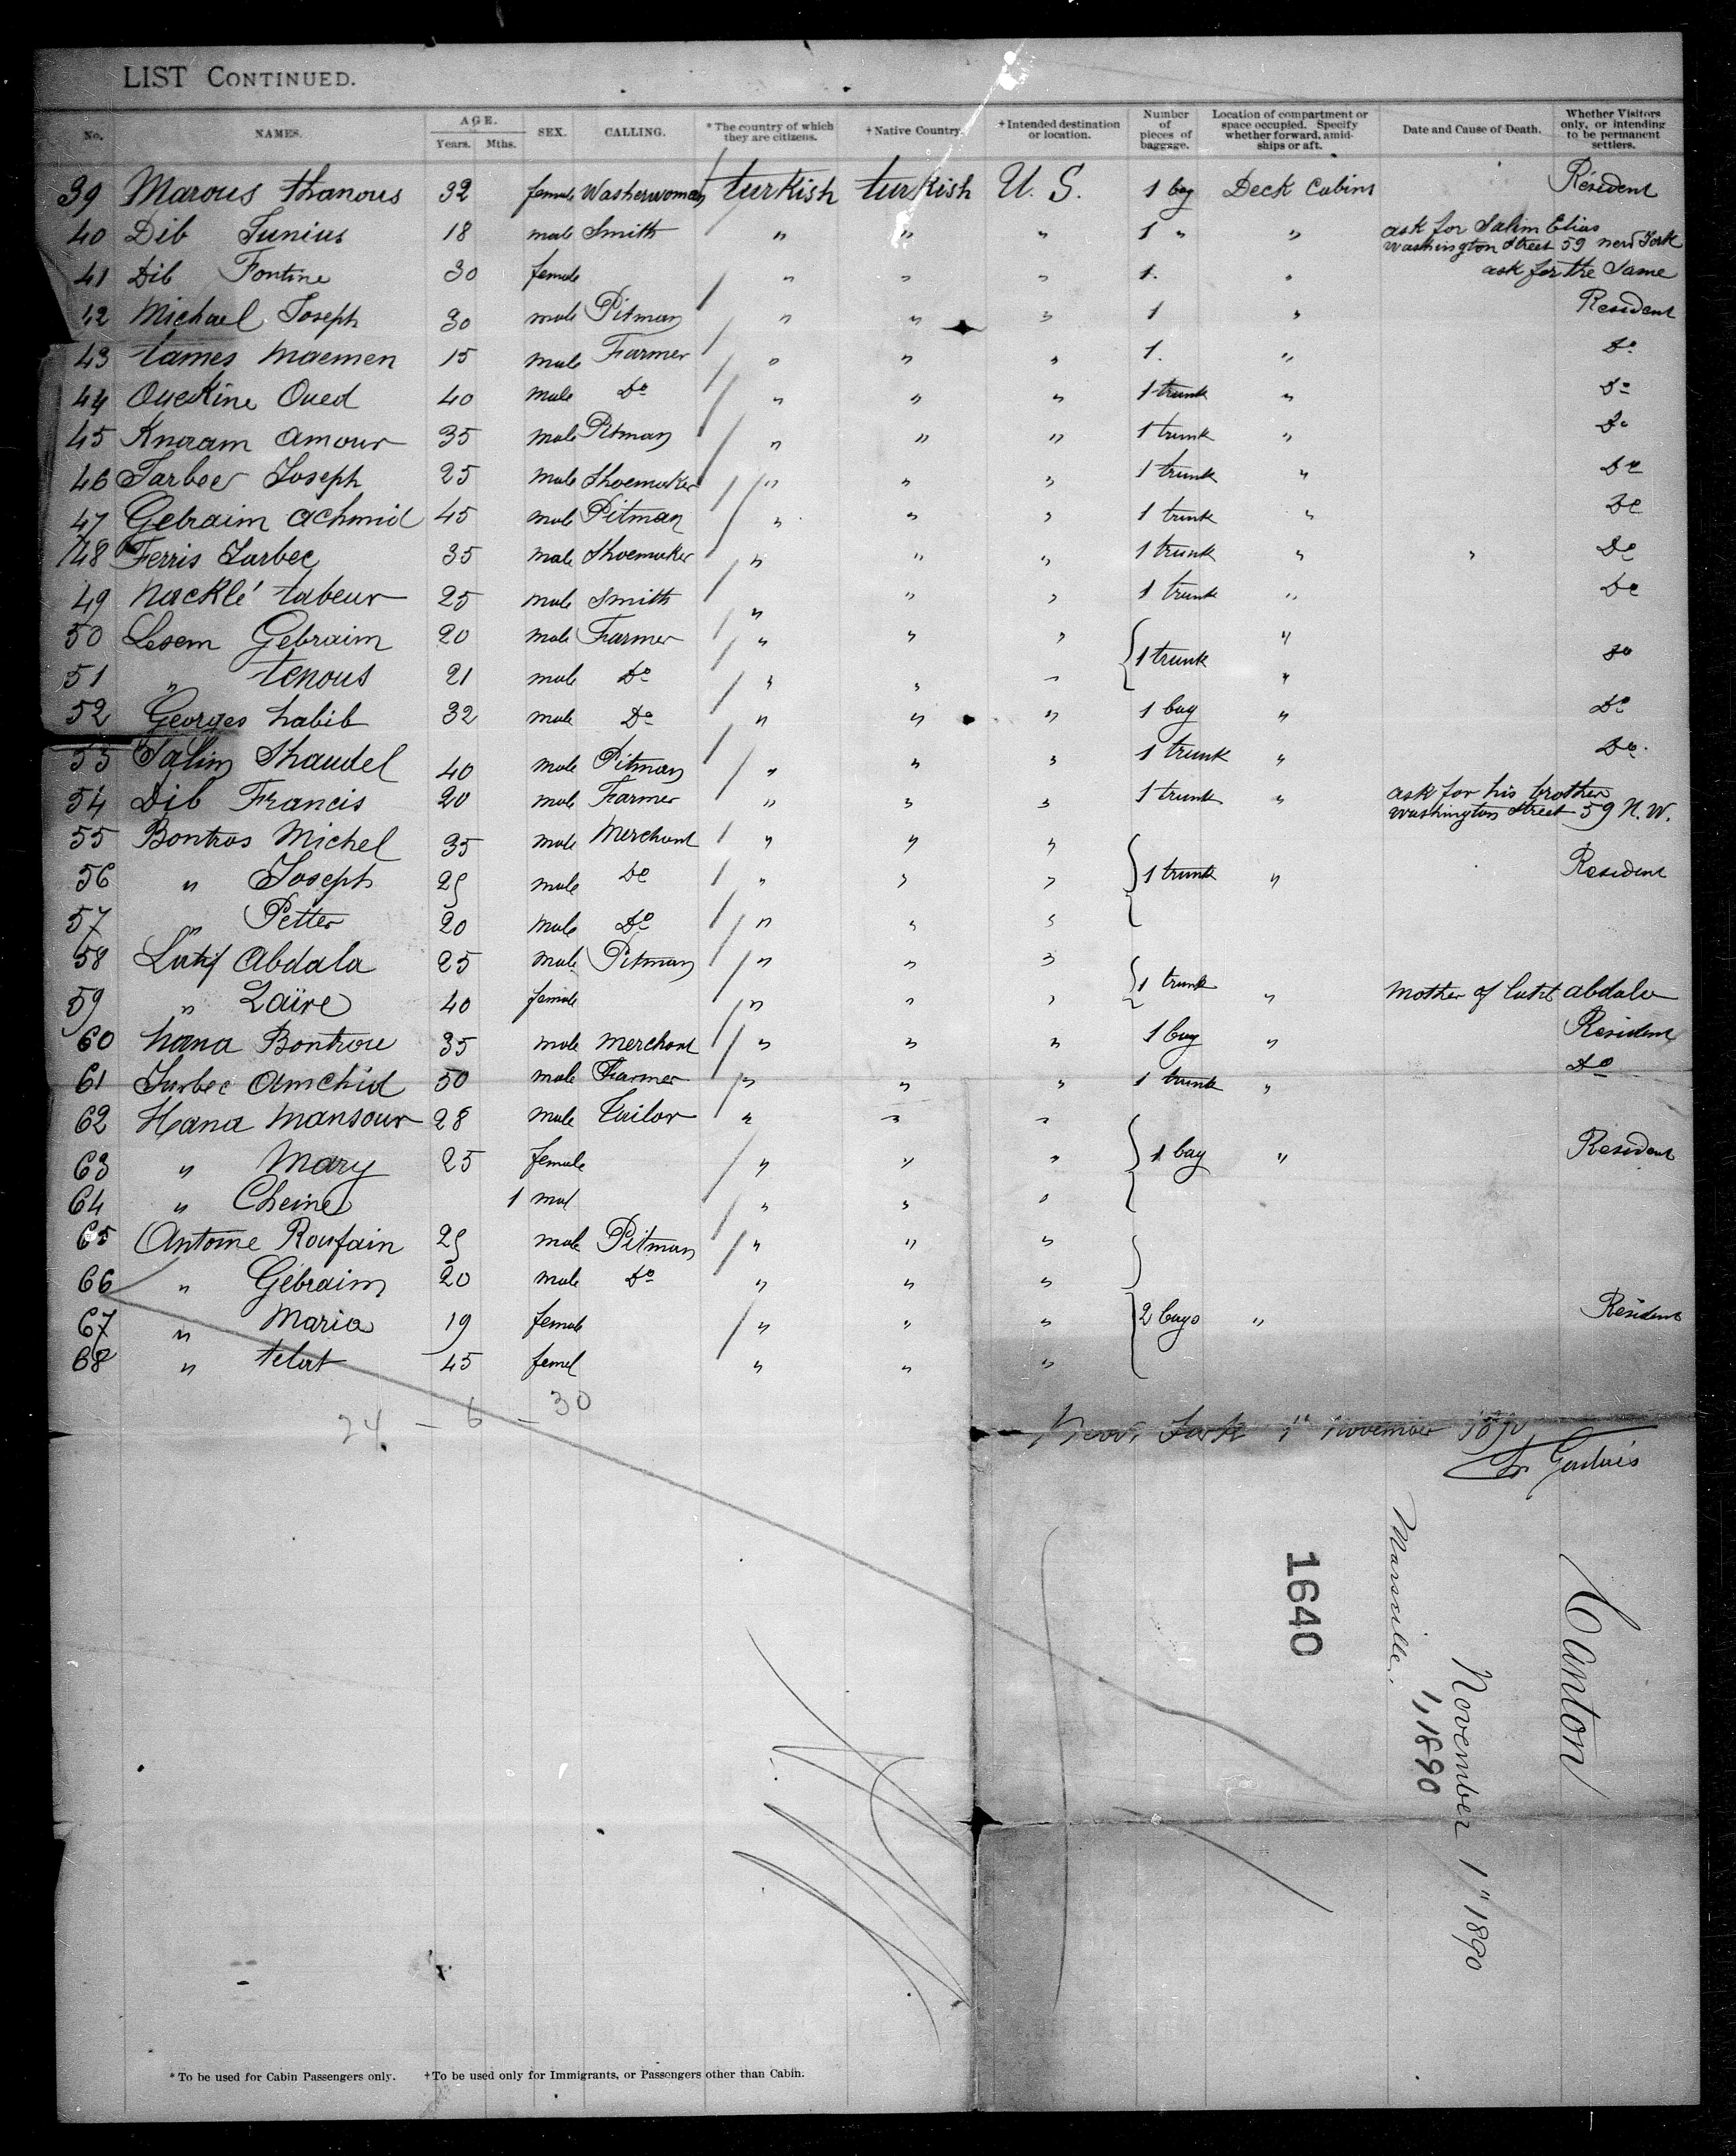 LIST CONTINUED.
No. NAMES. AGE. Years. Mths. SEX. CALLING. *The country of which they are citizens. †Native Country. †Intended destination or location. Number of pieces of baggage. Location of compartment or space occupied. Specify whether forward, amidships or aft. Date and Cause of Death. Whether Visitors only, or intending to be permanent settlers.
39 Marous thanous 32 female Washerwoman turkish turkish U. S. 1 bag Deck Cabins Resident
40 Dib Junius 18 male Smith " " " 1 " " ask for Salim Elias Washington Street 59 new York
41 Dib Fontine 30 female " " " 1. " ask for the Same
42 Michael Joseph 30 male Pitman " " " 1 " Resident
43 tames Maemen 15 male Farmer " " " 1. " Do
44 Oueskine Oued 40 male Do " " " 1 trunk " Do
45 Knaam Amour 35 male Pitman " " " 1 trunk " Do
46 Tarbee Joseph 25 male Shoemaker " " " 1 trunk " Do
47 Gebraim achmid 45 male Pitman " " " 1 trunk " Do
48 Ferris Tarbee 35 male Shoemaker " " " 1 trunk " " Do
49 Nacklé tabeur 25 male Smith " " " 1 trunk " Do
50 Lesem Gebraim 20 male Farmer " " " 1 trunk " Do
51 " tenous 21 male Do " " " "
52 Georges habib 32 male Do " " " 1 bag " Do
53 Salim Shaudel 40 male Pitman " " " 1 trunk " Do
54 Dib Francis 20 male Farmer " " " 1 trunk " ask for his brother Washington Street 59 N. W.
55 Bontros Michel 35 male Merchant " " "
56 " Joseph 25 male Do " " " 1 trunk " Resident
57 " Petter 20 male Do " " "
58 Latif Abdala 25 male Pitman " " " 1 trunk
59 " Zaïre 40 female " " " " Mother of latif abdala
60 hana Bontrou 35 male merchant " " " 1 bag " Resident
61 Tarbee Amchid 50 male Farmer " " " 1 trunk " Do
62 Hana Mansour 28 male Tailor " " "
63 " Mary 25 female " " " 1 bag " Resident
64 " Cheine 1 mal " " "
65 Antoine Roufain 25 male Pitman " " "
66 " Gebraim 20 male Do " " "
67 " Maria 19 female " " " 2 bags " Resident
68 " telat 45 femel " " "
24 - 6 - 30
New York 1st November 1890
Marseille.
1640
Canton
November 1" 1890
1, 1890
*To be used for Cabin Passengers only. †To be used only for Immigrants, or Passengers other than Cabin.